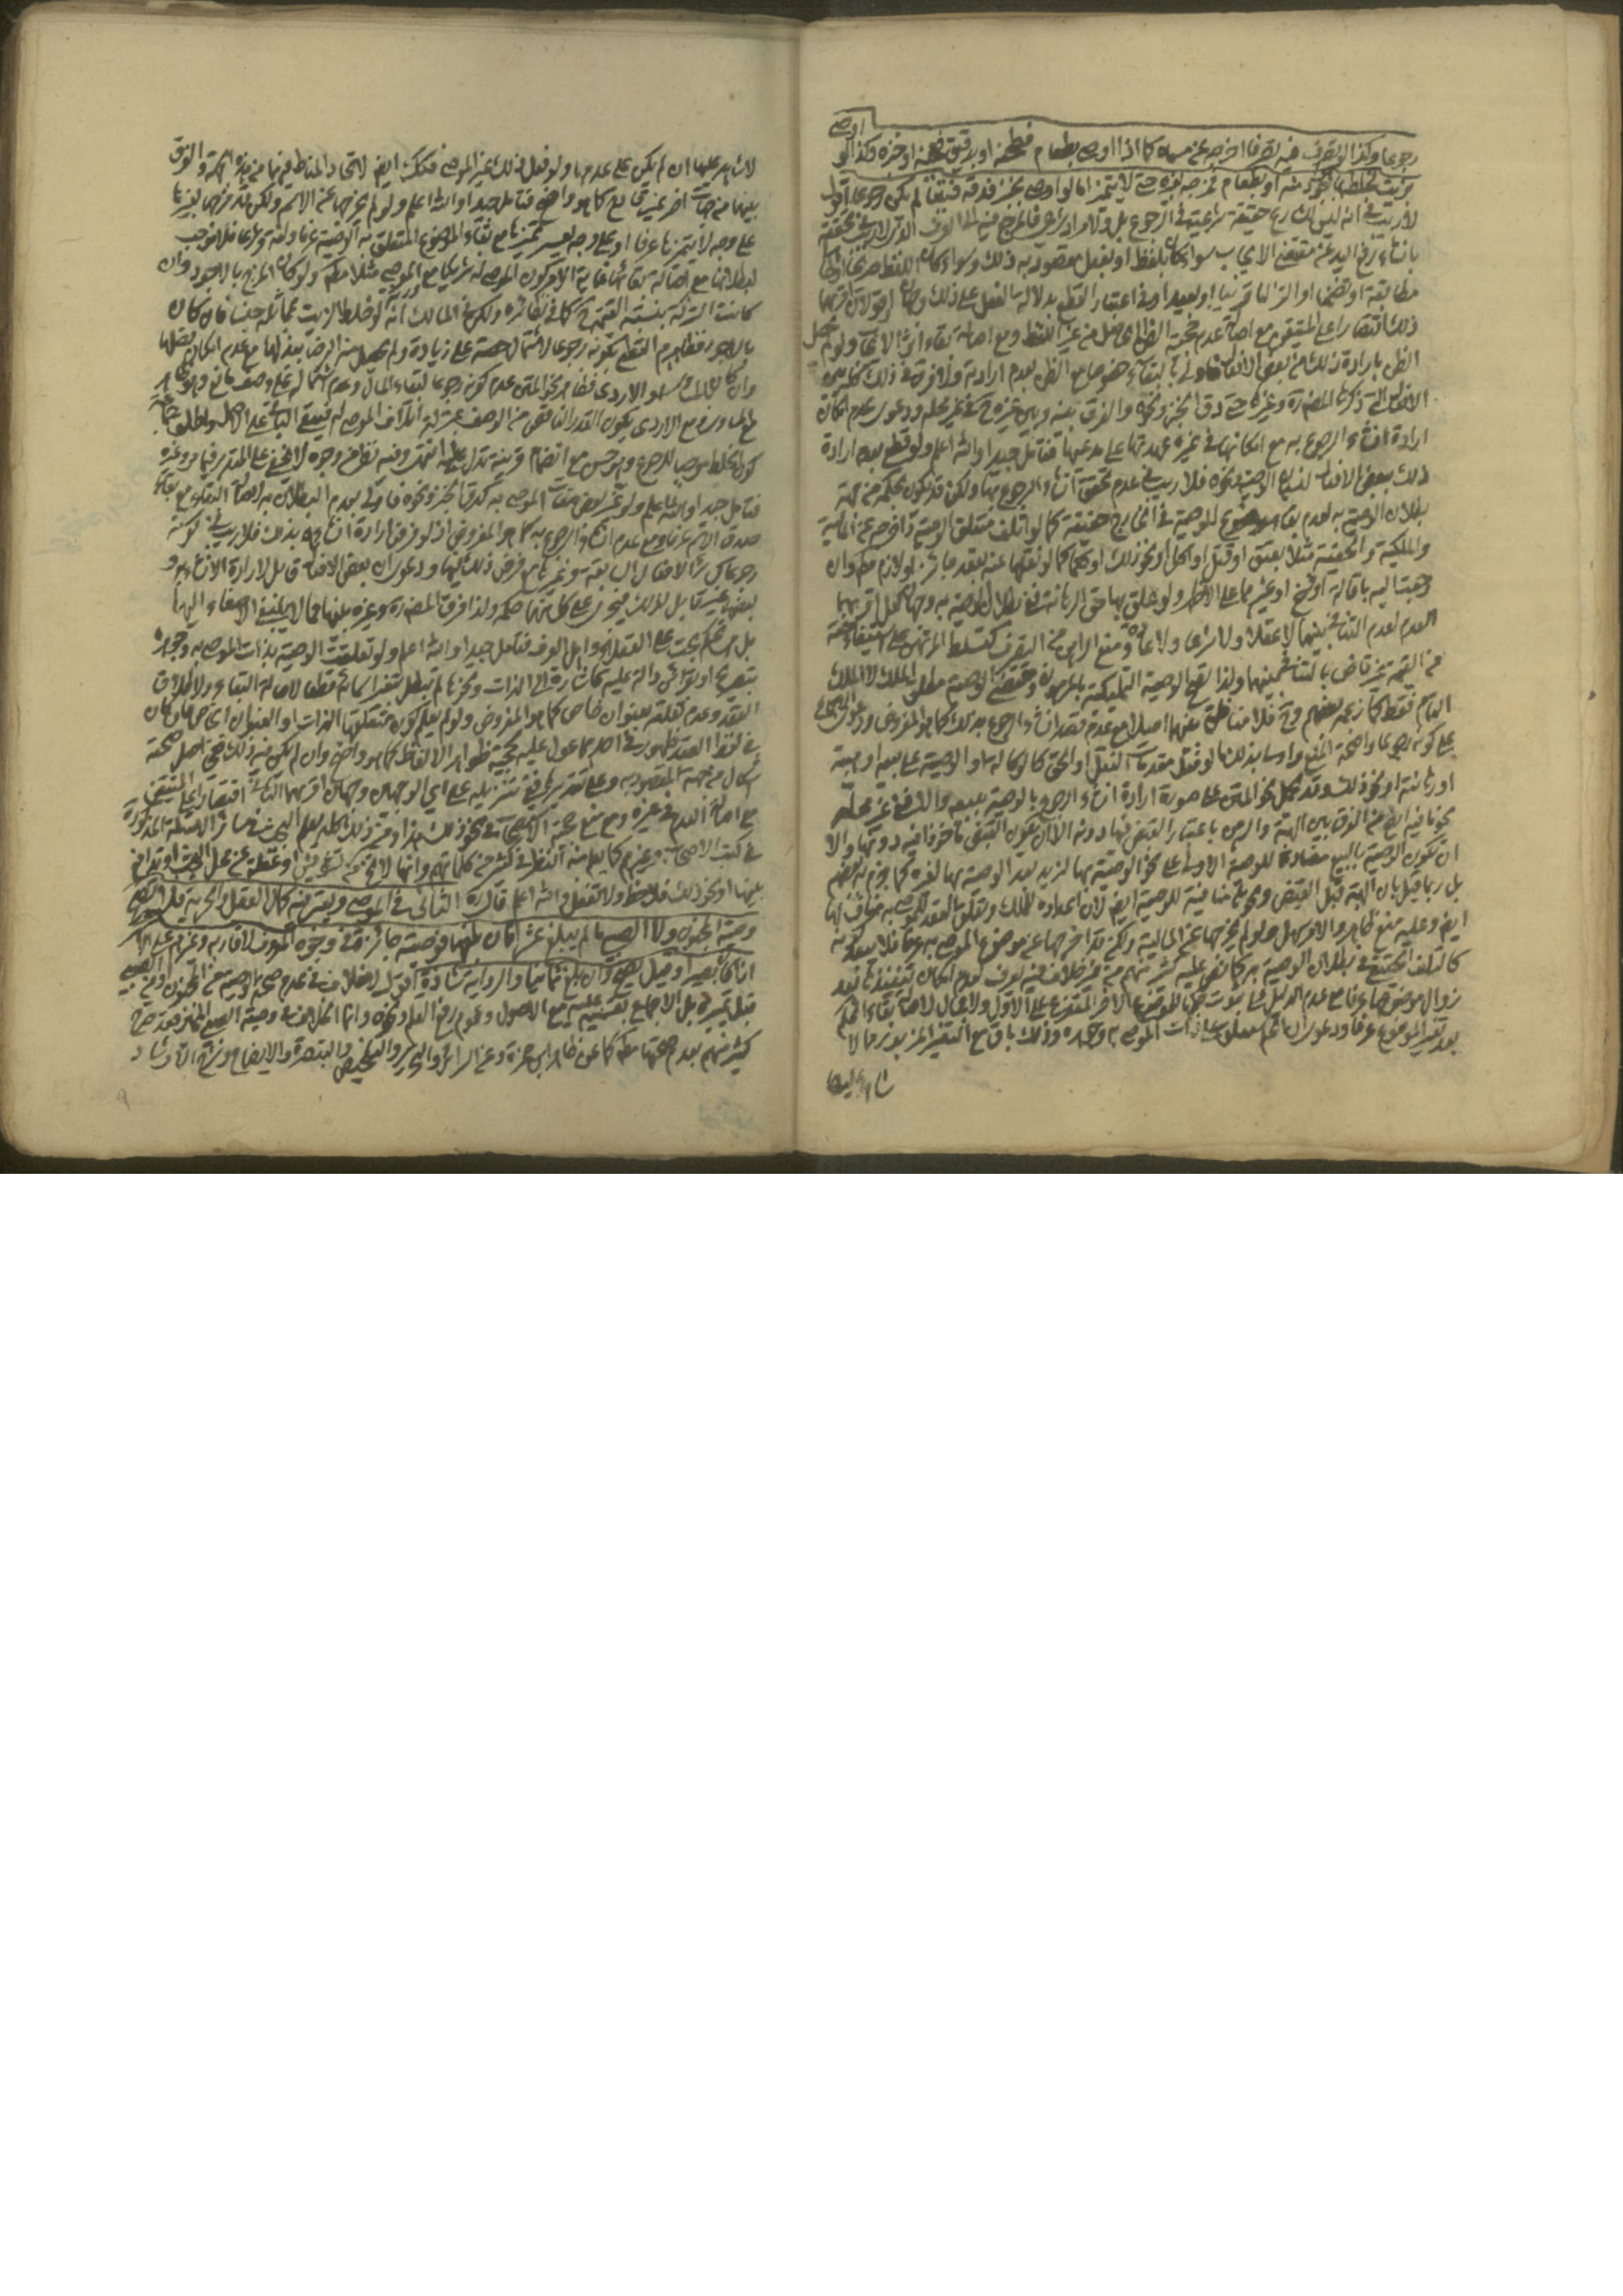 اوصى
رجوعا وكذا لو تصرف فيه تصرفا اخرجه عن مسماه كما اذا اوصى بطعام فطحنه او بدقيق فعجنه او خبزه وكذا لو
بزيت فخلطه او بطعام فمزجه بغيره حتى لا يتميز اما لو اوصى بخبز فدقه فتيتا لم يكن رجوعا اقول
لا ريب في انه ليس للشارع حقيقة شرعية في الرجوع بل ولا مراد شرعي فالمرجع فيه الى العرف الذي لا ريب في تحققه
بانشاء رفع اليد عن مقتضى الايجاب سواء كان بلفظ او بفعل مقصود به ذلك وسواء كان اللفظ صريحا
مطابقة او تضمنا او التزاما قريبا او بعيدا وفي اعتبار القطع بدلالة الفعل على ذلك وجهان
ذلك اقتصارا على المتيقن مع اصالة عدم حجية الظن الحاصل من غير اللفظ ومع اصالة بقاء اثر الايجاب ولو حصل
الظن بارادة ذلك من بعض الافعال
الافعال التي ذكرها المصنف وغيره حتى دق الخبز ونحوه والفرق بينه وبين غيره في غير محله ودعوى عدم امكان
ارادة انشاء الرجوع به مع امكانها في غيره عهدتها على مدعيها فتامل جيدا والله اعلم ولو قطع بعدم ارادة
ذلك ببعض الافعال لنسيان الوصية ونحوه فلا ريب في عدم تحقق انشاء الرجوع بها ولكن قد يكون بحكمه من جهة
بطلان الوصية لعدم بقاء موضوع للوصية في الخارج حقيقة كما لو اتلف متعلق الوصية او اخرجه عن المالية
والملكية والحقية مثلا بعتق او قتل او اكل او نحو ذلك او حكما كما لو نقلها عنه بعقد جائز او لازم مطلقا وان
رجعت اليه باقالة او فسخ او غيرهما على الاظهر ولو تعلق بها حق الرهانة ففي بطلان الوصية به وجهان اقربهما
العدم لعدم التنافي بينهما لا عقلا ولا شرعا ولا عادة ومنع الراهن من التصرف كتسلط المرتهن على استيفاء حقه
من القيمة غير قاض بالتنافي بينهما ولذا تقع الوصية التمليكية بالمرهون ومقتضى الوصية مطلق الملك لا الملك
التام فقط كما زعمه بعضهم وح فلا منافاة بينهما اصلا مع عدم قصد انشاء الرجوع بذلك كما هو المفروض ودعوى الاجماع
على كونه رجوعا واضحة المنع واسا بذلك ما لو فعل مقدمات النقل او الحق كالوكالة او الوصية على بيعه او هبته
او رهانته او نحو ذلك وقد يحمل نحو المتن على صورة ارادة انشاء الرجوع بالوصية ببيعه والا ففي غير محله
نحو ما فيه ايضا من الفرق بين الهبة والرهن باعتبار القبض فيها دونه الا ان يكون القبض ماخوذا فيه دونها والا
ان تكون الوصية بالبيع مضادة للوصية الاولى على نحو الوصية بها لزيد بعد الوصية بها لغيره كما جزم به بعضهم
بل ربما قيل بان الهبة قبل القبض ونحوها منافية للوصية ايضا
ايضا وعليه منع ظاهر والامر سهل ولو لم يخرجها عن المالية ولكن قد اخرجها عن موضوع الموصى به عرفا فلا يبعد كونه
كالتلف الحقيقي في بطلان الوصية به كما نص عليه كثير منهم من غير خلاف فيه يعرف لعدم امكان تنفيذها بعد
زوال موضوعها عرفا مع عدم الدليل على ثبوت حكمها للموضوع الاخر المتفرع على الاول ولا مجال لاصالة بقاء الحكم
بعد تغير الموضوع عرفا ودعوى ان الحكم معلق على ذات الموصى به وحده وذلك باق مع التغير المزبور مما لا
شاهد عليها
لا شاهد عليها ان لم يكن على عدمها ولو فعل ذلك غير الموصي فكذلك ايضا لاتحاد المناط فيهما من هذه الجهة والفرق
بينهما من جهات اخر غير قادح كما هو واضح فتامل جيدا والله اعلم ولو لم يخرجها عن الاسم ولكن قد مزجها بغيرها
على وجه لا يتميزها عرفا او على وجه يعسر تميزها مع بقاء الموضوع المتعلق به الوصية عرفا ولغة وشرعا فلا موجب
لبطلانها مع اصالة بقائها غاية الامر كون الموصى له شريكا مع الموصي مثلا مطلقا ولو كان المزج بالاجود وان
كانت الشركة بنسبة القيمة ح كما في نظائره ولكن في المسالك انه لو خلط الزيت مماثله جنسا فان كان
بالاجود فظاهرهم القطع بكونه رجوعا لاشتمال حصته على زيادة ولم يحصل منه الرضا ببذلها مع عدم امكان فصلها
وان كان بالمساوي او الاردى فظاهر نحو المتن عدم كونه رجوعا لبقاء المال وعدم اشتماله على وصف مانع
مع المساوي ومع الاردى يكون القدر الناقص من الوصف بمنزلة اتلاف الموصى له فيبقى الباقي على الاصل واطلق جماعة
كون الخلط موجبا للرجوع وهو حسن مع انضمام قرينة تدل عليه انتهى وفيه نظر من وجوه لا تخفى على المتدبر فيما مر وغيره
فتامل جيدا والله اعلم ولو تغير بعض صفات الموصى به كدق الخبز ونحوه فالاولى بعدم البطلان به لاصالة البقاء مع بقاء
صدق الاسم عرفا ومع عدم انشاء الرجوع به كما هو المفروض اذ لو فرض ارادة انشائه بذلك فلا ريب في كونه
رجوعا كسائر الافعال السابقة وغيرها مع فرض ذلك فيها ودعوى ان بعض الافعال قابل لارادة الانشاء به و
بعضها غير قابل لذلك فيجري على كل منهما حكمه ولذا فرق المصنف وغيره بينهما مما لا ينبغي الاصغاء اليها
بل هي تحكم بحت على العقلاء واهل العرف فتامل جيدا والله اعلم ولو تعلقت الوصية بذات الموصى به وحده
بتصريح او بقرائن دالة عليه كاشارة الى الذات ونحوها لم تبطل بتغير اسمائه قطعا لاصالة البقاء ولاطلاق
العقد وعدم تعلقه بعنوان خاص كما هو المفروض ولو لم يعلم كون متعلقها الذات او العنوان
في لفظ العقد ظهور في احدهما عول عليه لحجية ظواهر الالفاظ كما هو واضح وان لم يكن فيه ذلك ففي اصل صحته
اشكال من جهة المقصود به وعلى تقديرها ففي تنزيله على اي الوجهين وجهان اقربهما الثاني اقتصارا على المتيقن
مع اصالة العدم في غيره ومع منع حجية الاستصحاب في نحو ذلك هذا ومن ذلك كله يعلم البحث في سائر الامثلة المذكورة
في كتب الاصحاب وغيرهم كما يعلم منه النظر في كثير من كلماتهم وانها لا تخلو عن تشويش او غفلة عن محل البحث او تدافع
بينها او نحو ذلك فلاحظ ولا تغفل والله اعلم قال ره الثاني في الموصي ويعتبر فيه كمال العقل والحرية فلا تصح
وصية المجنون ولا الصبي ما لم يبلغ عشرا فان بلغها فوصيته جائزة في وجوه المعروف لاقاربه وغيرهم على الاشهر
اذا كان بصيرا وقيل تصح وان بلغ ثمانيا والرواية به شاذة اقول لا خلاف في عدم صحة الوصية من المجنون ومن الصبي
قبل تميزه بل الاجماع بقسميه عليه مع الاصول وعموم رفع القلم ونحوه وانما الخلاف في وصية الصبي المميز فعن صريح
كثير منهم بعدم صحتها مطلقا كما عن ظاهر ابن حمزة وعن السرائر والتحرير والتلخيص والتبصرة والايضاح وشرح الارشاد